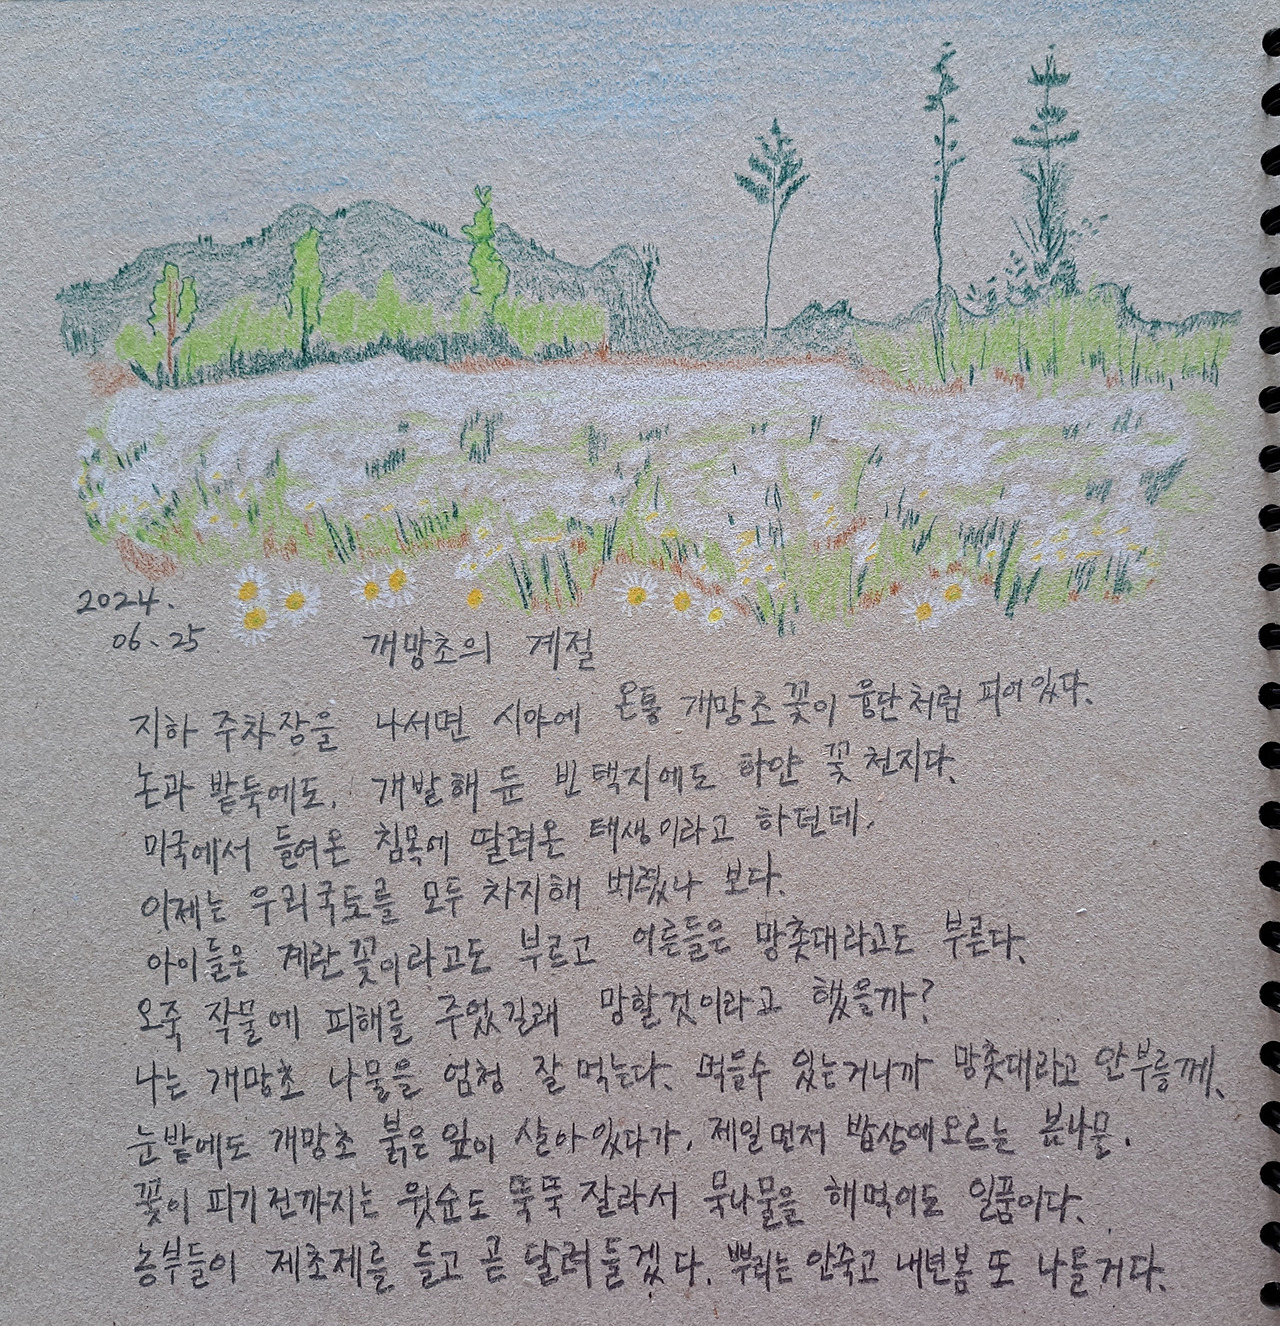 2024.
06.25
개망초의 계절
지하 주차장을 나서면 시야에 온통 개망초 꽃이 융단처럼 피어있다.
논과 밭둑에도, 개발해 둔 빈 택지에도 하얀 꽃 천지다.
미국에서 들여온 침목에 딸려온 태생이라고 하던데,
이제는 우리국토를 모두 차지해 버렸나 보다.
아이들은 계란꽃이라고도 부르고 어른들은 망촛대라고도 부른다.
오죽 작물에 피해를 주었길래 망할것이라고 했을까?
나는 개망초 나물을 엄청 잘 먹는다. 먹을수 있는거니까 망촛대라고 안부를께.
눈밭에도 개망초 붉은 잎이 살아있다가, 제일먼저 밥상에오르는 봄나물.
꽃이 피기 전까지는 윗순도 뚝뚝 잘라서 묵나물을 해먹어도 일품이다.
농부들이 제초제를 들고 곧 달려들겠다. 뿌리는 안죽고 내년봄 또 나올거다.